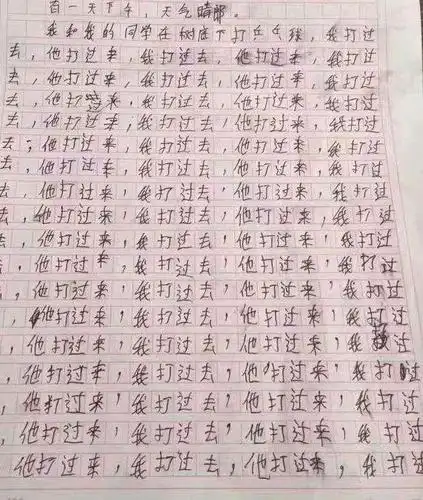 百一天下午，天气晴郎。
我和我的同学在树底下打乒乓球，我打过
去，他打过来，我打过去，他打过来，我打过
去，他打过来，我打过去，他打过来，我打过
去，他打过来，我打过去，他打过来，我打过
去，他打过来，我打过去，他打过来，我打过
去，他打过来，我打过去，他打过来，我打过
去，他打过来，我打过去，他打过来，我打过
去，他打过来，我打过去，他打过来，我打过
去，他打过来，我打过去，他打过来，我打过
去，他打过来，我打过去，他打过来，我打过
，他打过来，我打过去，他打过来，我打过
，他打过来，我打过去，他打过来，我打过
，他打过来，我打过去，他打过来，我打过
，他打过来，我打过去，他打过来，我打过
，他打过来，我打过去，他打过来，我打过
，他打过来，我打过去，他打过来，我打过
，他打过来，我打过去，他打过来，我打过
他打过来，我打过去，他打过来，我打过